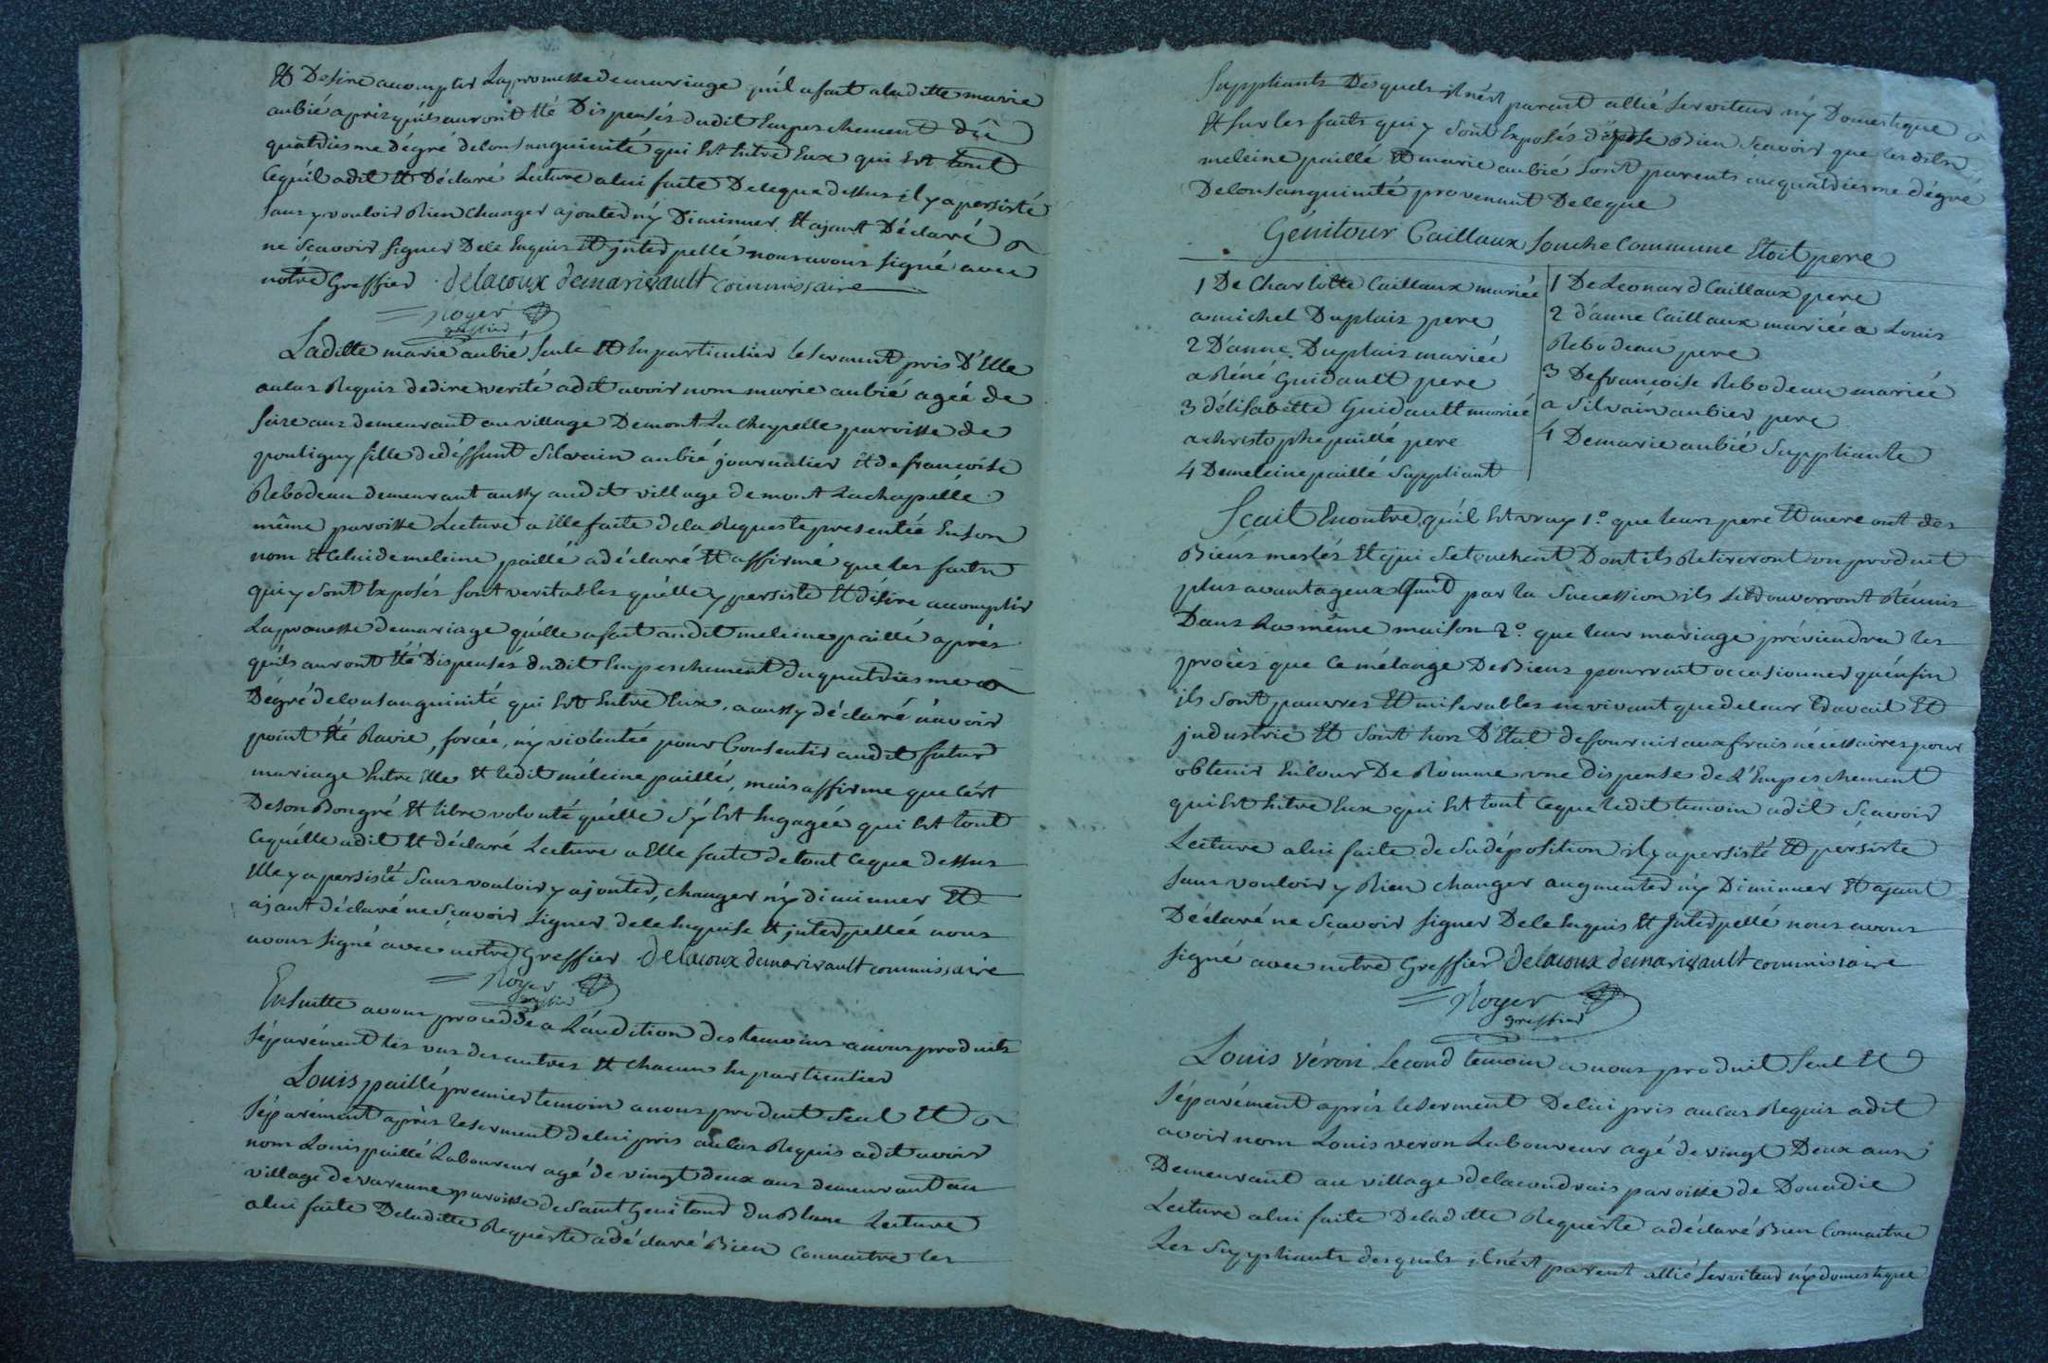 Et Desire accomplir La promesse de mariage qu'il a fait a laditte marie
aubié apris qu'ils auront été Dispensés dudit Empeschement dû
quatriesme dégré de consanguinité qui Est Entre Eux qui Est tout
Cequ'il adit Et Déclaré Lecture alui faite De ceque dessus il y apersisté
sans y vouloir Rien changer ajouter ny Diminuer Et ajant Déclaré
ne scavoir signer De ce Enquis Et jnterpellé nous avons signé avec
nôtre Greffier delacoux demarivault commissaire
Royer
greffier
Laditte marie aubié seule Et En particulier le serment pris D'Elle
aucas Requis de dire verité adit avoir nom marie aubié agée de
seize ans demeurant au village Demont La Chapelle paroisse de
pouligny fille de déffunt Silvain aubié journalier Et de francoise
Rebodeau demeurant aussy audit village de mont Lachapelle
même paroisse Lecture a Elle faite dela Requeste presentée Enson
nom Et celui de meleine paillé adéclaré Et affirmé que les faits
qui y sont Exposés sont veritables qu'elle y persiste Et désire accomplir
La promesse demariage qu'elle afait audit meleine paillé après
qu'ils auront été Dispensés dudit Empeschement du quatriesme
Dégré de consanguinité qui Est Entre Eux, a aussy déclaré n'avoir
point Eté Ravie, forcée, ny violentée pour Consentir audit futur
mariage Entre Elle Et ledit méleine paillé, mais affirme que c'est
De son Bongré Et libre volonté qu'elle s'y Est Engagée qui Est tout
cequ'elle adit Et déclaré Lecture a Elle faite de tout ceque dessus
Elle y a persisté sans vouloir y ajouter, changer ny diminuer Et
ajant déclaré ne scavoir signer de ce Enquise Et jnterpellée nous
avons signé avec nôtre Greffier delacoux demarivault commissaire
Royer
greffier
Ensuitte avons procedé a L'audition des temoins anous produits
séparément les uns des autres Et chacun En particulier
Louis paillé premier temoin anous produit seul Et
séparément après le serment de lui pris aucas Requis adit avoir
nom Louis paillé Laboureur agé de vingt deux ans demeurant au
village de varenne paroisse de Saint Genitour du Blanc Lecture
alui faite De laditte Requeste adéclaré Bien connaitre les
Suppliants Desquels il n'est parent allié serviteur ny Domestique
Et sur les faits qui y sont Exposés dépose Bien scavoir que lesdits
meleine paillé Et marie aubié sont parents au quatriesme dégré
De consanguinité provenant De ceque
Génitour Caillaux souche commune Etoit pere
1 De Charlotte Caillaux mariée
a michel Duplaix pere
2 D'anne Duplaix mariée
a Réné Guidault pere
3 d'élisabette Guidault mariée
a christophe paillé pere
4 De meleine paillé Suppliant
1 De Leonard Caillaux pere
2 d'anne Caillaux mariée a Louis
Rebodeau pere
3 De francoise Rebodeau mariée
a Silvain aubier pere
4 De marie aubié Suppliante
Scait En outre, qu'il Est vray 1.° que leurs pere Et mere ont des
Biens meslés Et qui se touchent Dont ils Retireront un produit
plus avantageux quand par la succession ils se trouverront Réunis
Dans la même maison 2.° que leur mariage préviendra les
procès que ce mélange De Biens pourrait occasionner qu'enfin
ils sont pauvres Et miserables ne vivant que de leur travail Et
jndustrie Et sont hors D'Etat de fournir aux frais nécessaires pour
obtenir En Cour De Romme une dispense de L'Empeschement
qui Est Entre Eux qui Est tout ceque ledit temoin adit scavoir
Lecture alui faite de sa déposition il y a persisté Et persiste
sans vouloir y Rien changer augmenter ny Diminuer Et ajant
Déclaré ne scavoir signer De ce Enquis Et jnterpellé nous avons
signé avec nôtre Greffier delacoux demarivault commissaire
Royer
greffier
Louis véron second temoin a nous produit seul Et
séparément après le serment De lui pris aucas Requis adit
avoir nom Louis veron Laboureur agé de vingt Deux ans
Demeurant au village delacoudrais paroisse de Douadic
Lecture alui faite De laditte Requeste adéclaré Bien Connaitre
Les Suppliants desquels il n'est parent allié serviteur ny domestique